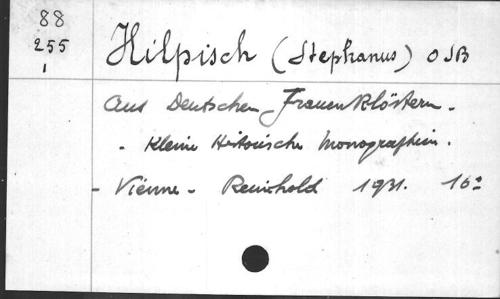 88
255
1
Hilpisch (Stephanus) OSB
Aus Deutschen Frauenklöstern.
- Kleine Historische Monographien.
- Vienne - Reinhold 1931. 16º